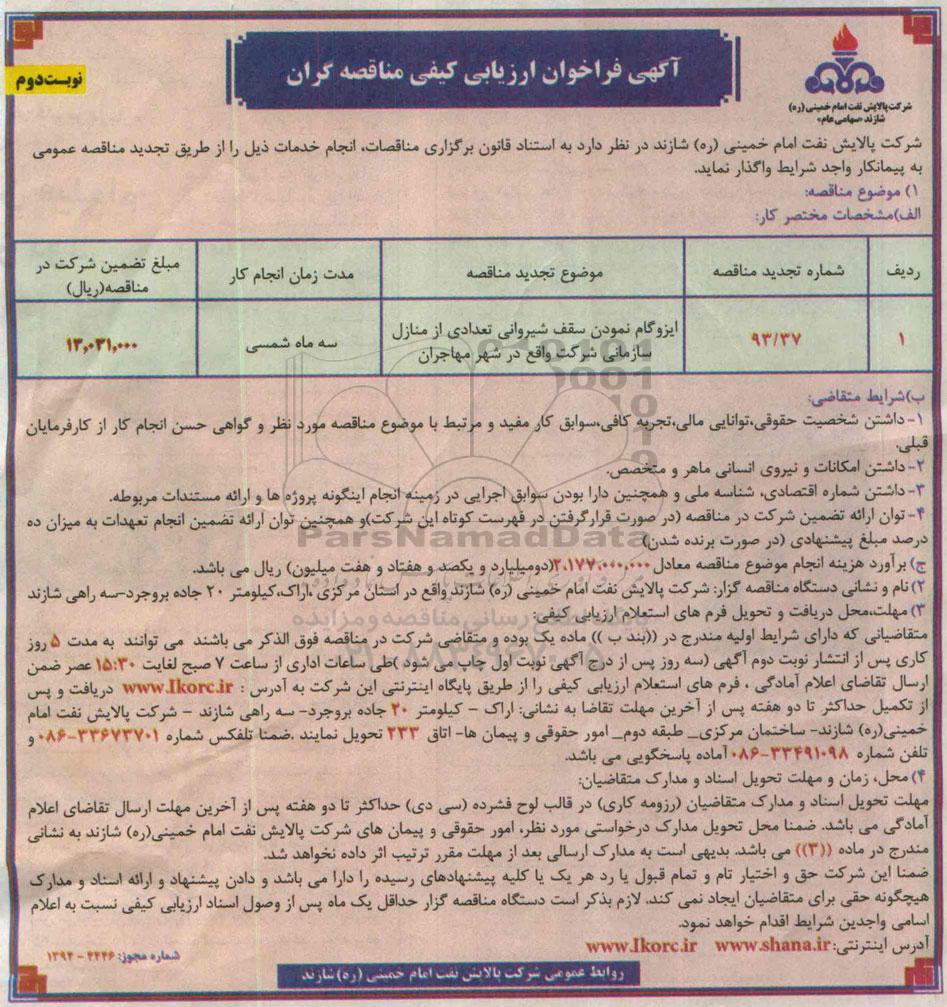 آگهی فراخوان ارزیابی کیفی مناقصه گران
نوبت دوم
شرکت پالایش نفت امام خمینی (ره)
شازند «سهامی عام»
شرکت پالایش نفت امام خمینی (ره) شازند در نظر دارد به استناد قانون برگزاری مناقصات، انجام خدمات ذیل را از طریق تجدید مناقصه عمومی
به پیمانکار واجد شرایط واگذار نماید.
۱) موضوع مناقصه:
الف)مشخصات مختصر کار:
ردیف شماره تجدید مناقصه موضوع تجدید مناقصه مدت زمان انجام کار مبلغ تضمین شرکت در
مناقصه(ریال)
۱ ۹۳/۳۷ ایزوگام نمودن سقف شیروانی تعدادی از منازل
سازمانی شرکت واقع در شهر مهاجران سه ماه شمسی
ب)شرایط متقاضی:
۱- داشتن شخصیت حقوقی،توانایی مالی،تجربه کافی،سوابق کار مفید و مرتبط با موضوع مناقصه مورد نظر و گواهی حسن انجام کار از کارفرمایان
قبلی.
۲- داشتن امکانات و نیروی انسانی ماهر و متخصص.
۳- داشتن شماره اقتصادی، شناسه ملی و همچنین دارا بودن سوابق اجرایی در زمینه انجام اینگونه پروژه ها و ارائه مستندات مربوطه.
۴- توان ارائه تضمین شرکت در مناقصه (در صورت قرارگرفتن در فهرست کوتاه این شرکت)و همچنین توان ارائه تضمین انجام تعهدات به میزان ده
درصد مبلغ پیشنهادی (در صورت برنده شدن)
ParsNamadData
ج) برآورد هزینه انجام موضوع مناقصه معادل (دومیلیارد و یکصد و هفتاد و هفت میلیون) ریال می باشد.
۲) نام و نشانی دستگاه مناقصه گزار: شرکت پالایش نفت امام خمینی (ره) شازند واقع در استان مرکزی ،اراک،کیلومتر ۲۰ جاده بروجرد-سه راهی شازند
۳) مهلت،محل دریافت و تحویل فرم های استعلام ارزیابی کیفی:
متقاضیانی که دارای شرایط اولیه مندرج در ((بند ب )) ماده یک بوده و متقاضی شرکت در مناقصه فوق الذکر می باشند می توانند به مدت ۵ روز
کاری پس از انتشار نوبت دوم آگهی (سه روز پس از درج آگهی نوبت اول چاپ می شود )طی ساعات اداری از ساعت ۷ صبح لغایت ۱۵:۳۰ عصر ضمن
ارسال تقاضای اعلام آمادگی ، فرم های استعلام ارزیابی کیفی را از طریق پایگاه اینترنتی این شرکت به آدرس : www.Ikorc.ir دریافت و پس
از تکمیل حداکثر تا دو هفته پس از آخرین مهلت تقاضا به نشانی: اراک – کیلومتر ۲۰ جاده بروجرد- سه راهی شازند – شرکت پالایش نفت امام
خمینی(ره) شازند- ساختمان مرکزی_ طبقه دوم_ امور حقوقی و پیمان ها- اتاق ۲۳۳ تحویل نمایند .ضمنا تلفکس شماره ۳۳۶۷۳۷۰۱-۰۸۶ و
تلفن شماره ۳۳۴۹۱۰۹۸-۰۸۶ آماده پاسخگویی می باشد.
۴) محل، زمان و مهلت تحویل اسناد و مدارک متقاضیان:
مهلت تحویل اسناد و مدارک متقاضیان (رزومه کاری) در قالب لوح فشرده (سی دی) حداکثر تا دو هفته پس از آخرین مهلت ارسال تقاضای اعلام
آمادگی می باشد. ضمنا محل تحویل مدارک درخواستی مورد نظر، امور حقوقی و پیمان های شرکت پالایش نفت امام خمینی(ره) شازند به نشانی
مندرج در ماده ((۳)) می باشد. بدیهی است به مدارک ارسالی بعد از مهلت مقرر ترتیب اثر داده نخواهد شد.
ضمنا این شرکت حق و اختیار تام و تمام قبول یا رد هر یک یا کلیه پیشنهادهای رسیده را دارا می باشد و دادن پیشنهاد و ارائه اسناد و مدارک
هیچگونه حقی برای متقاضیان ایجاد نمی کند. لازم بذکر است دستگاه مناقصه گزار حداقل یک ماه پس از وصول اسناد ارزیابی کیفی نسبت به اعلام
اسامی واجدین شرایط اقدام خواهد نمود.
آدرس اینترنتی: www.Ikorc.ir www.shana.ir
شماره مجوز: ۴۴۴۶ - ۱۳۹۴
روابط عمومی شرکت پالایش نفت امام خمینی (ره) شازند